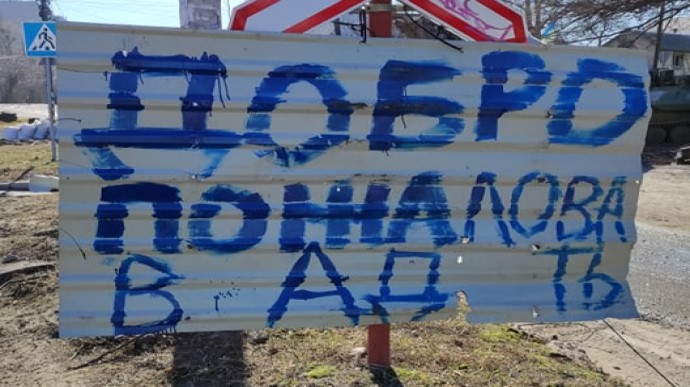 ДОБРО
ПОЖАЛОВА
ТЬ
В АД